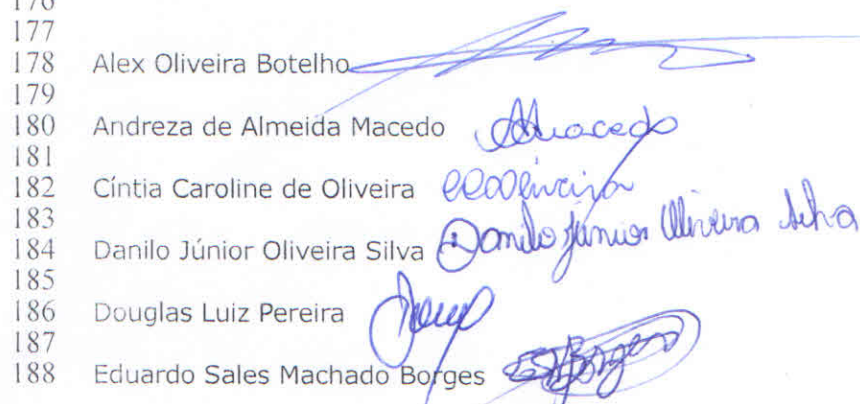 176
177
178 Alex Oliveira Botelho
179
180 Andreza de Almeida Macedo AMacedo
181
182 Cíntia Caroline de Oliveira CCOliveira
183
184 Danilo Júnior Oliveira Silva Danilo Júnior Oliveira Silva
185
186 Douglas Luiz Pereira
187
188 Eduardo Sales Machado Borges ESMBorges